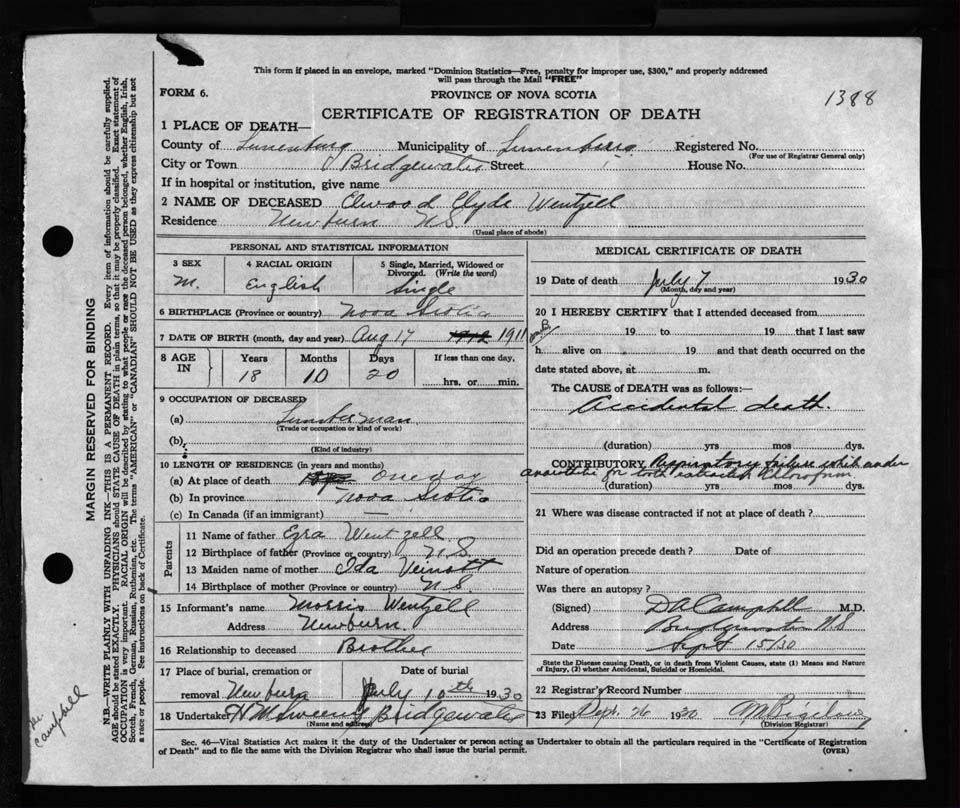 This form if placed in an envelope, marked "Dominion Statistics—Free, penalty for improper use, $300," and properly addressed
will pass through the Mail "FREE"
FORM 6.
PROVINCE OF NOVA SCOTIA
1388
CERTIFICATE OF REGISTRATION OF DEATH
1 PLACE OF DEATH—
County of Lunenburg Municipality of Lunenburg Registered No.
(For use of Registrar General only)
City or Town Bridgewater Street House No.
If in hospital or institution, give name
2 NAME OF DECEASED Elwood Clyde Wentzell
Residence Newburn N.S.
(Usual place of abode)
PERSONAL AND STATISTICAL INFORMATION
3 SEX
M.
4 RACIAL ORIGIN
English
5 Single, Married, Widowed or
Divorced. (Write the word)
Single
6 BIRTHPLACE (Province or country) Nova Scotia
7 DATE OF BIRTH (month, day and year) Aug 17 1912 1911
8 AGE IN
Years Months Days If less than one day,
18 10 20 hrs. or min.
9 OCCUPATION OF DECEASED
(a) Lumberman
(Trade or occupation or kind of work)
(b)
(Kind of industry)
10 LENGTH OF RESIDENCE (in years and months)
(a) At place of death one day
(b) In province Nova Scotia
(c) In Canada (if an immigrant) —
Parents
11 Name of father Ezra Wentzell
12 Birthplace of father (Province or country) N.S.
13 Maiden name of mother Ida Veinott
14 Birthplace of mother (Province or country) N.S.
15 Informant's name Morris Wentzell
Address Newburn
16 Relationship to deceased Brother
17 Place of burial, cremation or Date of burial
removal Newburn July 10th 1930
18 Undertaker H M Sweeny Bridgewater
(Name and address)
MEDICAL CERTIFICATE OF DEATH
19 Date of death July 7 1930
(Month, day and year)
20 I HEREBY CERTIFY that I attended deceased from
19 to 19 that I last saw
h alive on 19 and that death occurred on the
date stated above, at m.
The CAUSE of DEATH was as follows:—
Accidental death.
(duration) yrs mos dys.
CONTRIBUTORY Respiratory failure while under
anaesthetic for tooth extraction Chloroform
(duration) yrs mos dys.
21 Where was disease contracted if not at place of death?
Did an operation precede death? Date of
Nature of operation
Was there an autopsy?
(Signed) D A Campbell M.D.
Address Bridgewater N.S
Date Sept 15/30
State the Disease causing Death, or in death from Violent Causes, state (1) Means and Nature
of Injury, (2) whether Accidental, Suicidal or Homicidal.
22 Registrar's Record Number
23 Filed Sept. 26 1930
(Division Registrar)
Sec. 46—Vital Statistics Act makes it the duty of the Undertaker or person acting as Undertaker to obtain all the particulars required in the "Certificate of Registration
of Death" and to file the same with the Division Registrar who shall issue the burial permit.
(OVER)
MARGIN RESERVED FOR BINDING
N.B.—WRITE PLAINLY WITH UNFADING INK—THIS IS A PERMANENT RECORD. Every item of information should be carefully supplied.
AGE should be stated EXACTLY. PHYSICIANS should STATE CAUSE OF DEATH in plain terms, so that it may be properly classified. Exact statement of
OCCUPATION is very important. RACIAL ORIGIN will be described by stating to what people or race the deceased person belonged, whether English, Irish,
Scotch, French, German, Russian, Ruthenian, etc. The terms "AMERICAN" or "CANADIAN" SHOULD NOT BE USED as they express citizenship but not
a race or people. See instructions on back of Certificate.
Campbell